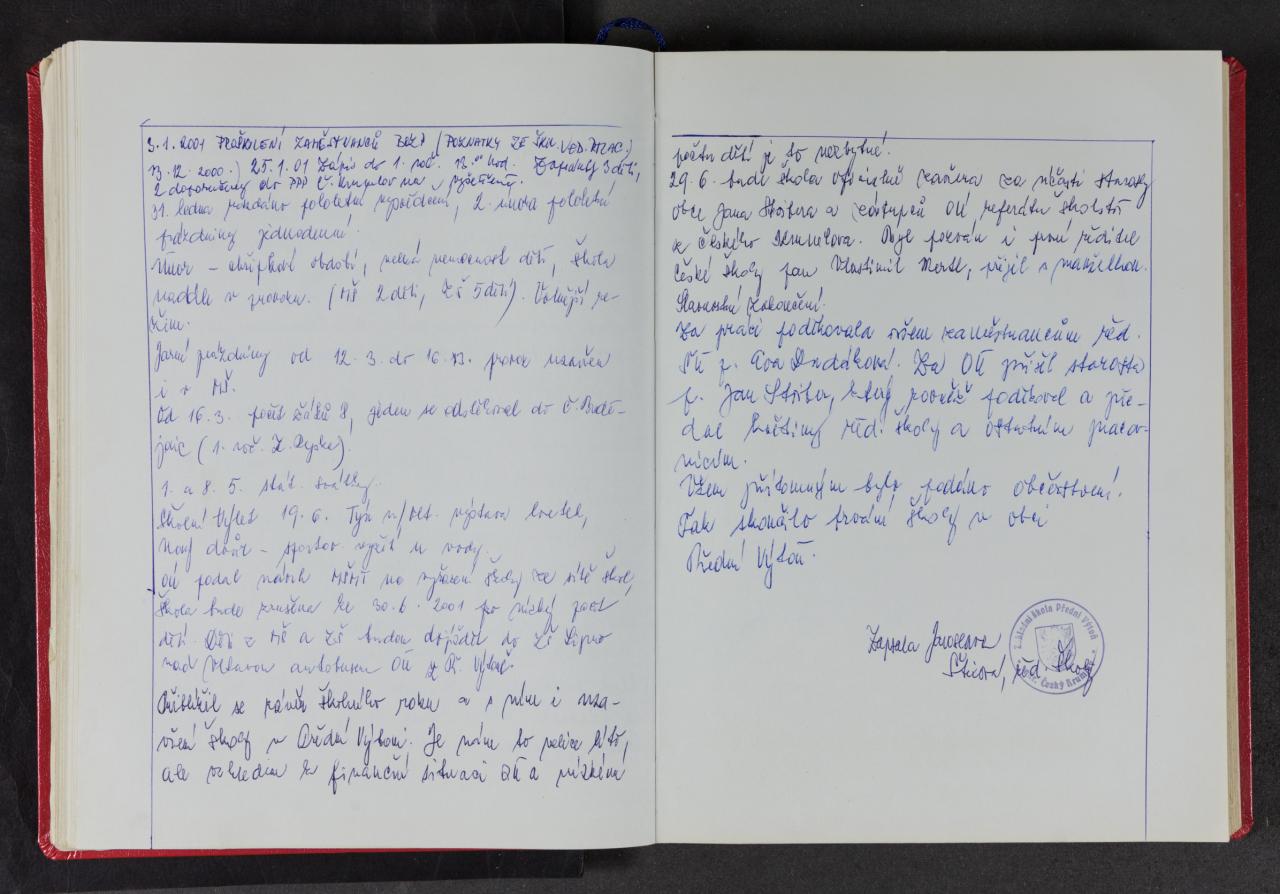 3.1.2001 PROŠKOLENÍ ZAMĚSTNANCŮ BOZP (POZNATKY ZE ŠKOL. VED. PRAC.)
13.12.2000.) 25.1.01 Zápis do 1. roč. 13.00 hod. Zapsány 3 děti,
2 doporučeny do PPP Č. Krumlov na vyšetření.
31. ledna předáno pololetní vysvědčení, 2. února pololetní
prázdniny jednodenní.
Únor – chřipkové období, velká nemocnost dětí, škola
nadále v provozu. (MŠ 2 děti, ZŠ 5 dětí). Volnější re-
žim.
Jarní prázdniny od 12.3. do 16.3. provoz uzavřen
i v MŠ.
Od 16.3. počet žáků 8, jeden se odstěhoval do Č. Budě-
jovic (1. roč. Z.
1. a 8. 5. stát. svátky.
Školní výlet 19.6. Týn n/Vlt. výstava loutek,
Nový dvůr – sportov. vyžití u vody.
OÚ podal návrh MŠMT na vyřazení školy ze sítě škol,
škola bude zrušena ke 30.6.2001 pro nízký počet
dětí. Děti z MŠ a ZŠ budou dojíždět do ZŠ Lipno
nad Vltavou autobusem OÚ z Př. Výtoně.
Přiblížil se závěr školního roku a s ním i uza-
vření školy v Přední Výtoni. Je nám to velice líto,
ale vzhledem k finanční situaci OÚ a nízkému
počtu dětí je to nezbytné.
29.6. bude škola oficiálně zavřena za účasti starosty
obce Jana Střítera a zástupců OÚ referátu školství
z Českého Krumlova. Byl pozván i první ředitel
české školy pan Vlastimil Mertl, přijel s manželkou.
Slavnostní zakončení.
Za práci poděkovala všem zaměstnancům řed.
ŠÚ p. Eva Dudáková. Za OÚ přišel starosta
p. Jan Stříter, který rovněž poděkoval a pře-
dal květiny řed. školy a ostatním pracov-
nicím.
Všem přítomným bylo podáno občerstvení.
Tak skončilo trvání školy v obci
Přední Výtoň.
Zapsala Jaroslava
řed. školy
Základní škola Přední Výtoň
Český Krumlov